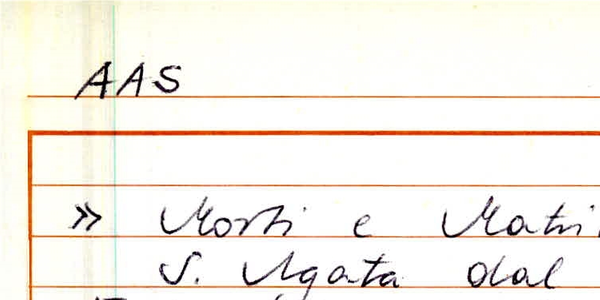 AAS
» Morti e Matri
S. Agata dal